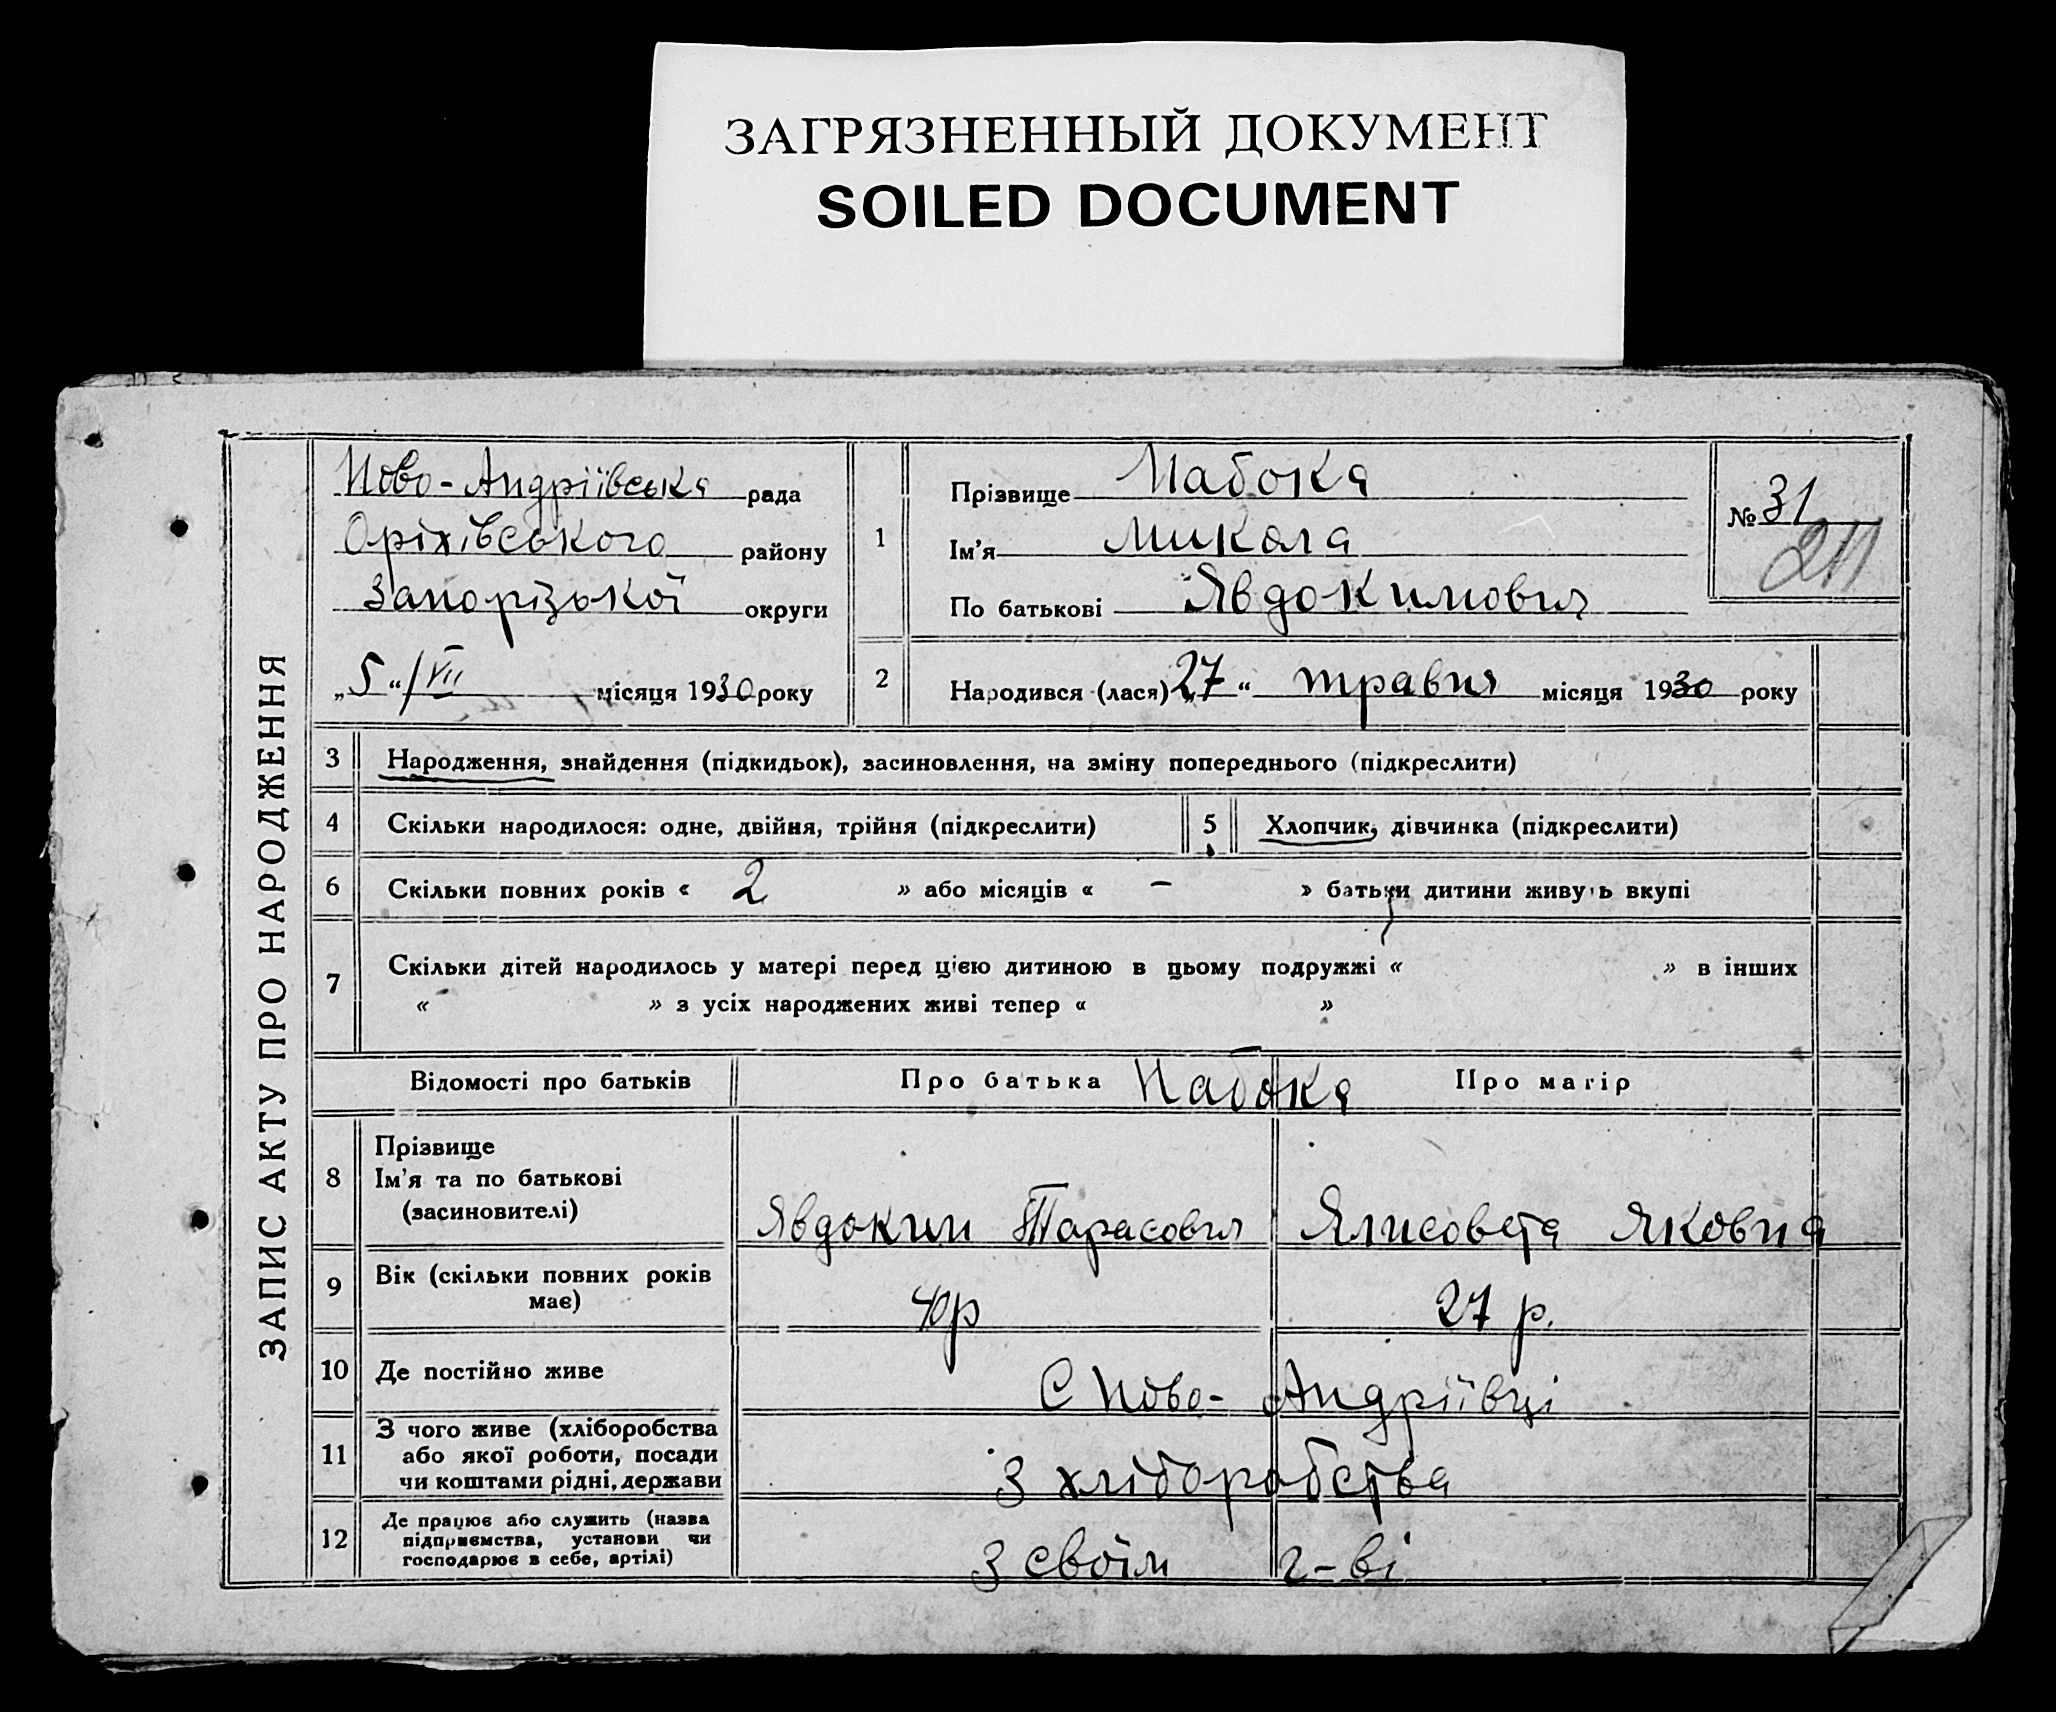 ЗАГРЯЗНЕННЫЙ ДОКУМЕНТ
SOILED DOCUMENT
ЗАПИС АКТУ ПРО НАРОДЖЕННЯ
Ново-Андріївська рада
Оріхівського району
Запорізької округи
„5“/VII місяця 1930 року
1
Прізвище Набока
Ім’я Микола
По батькові Явдокимович
№ 31
211
2 Народився (лася) „27“ травня місяця 1930 року
3 Народження, знайдення (підкидьок), засиновлення, на зміну попереднього (підкреслити)
4 Скільки народилося: одне, двійня, трійня (підкреслити) 5 Хлопчик, дівчинка (підкреслити)
6 Скільки повних років « 2 » або місяців « – » батьки дитини живуть вкупі
7 Скільки дітей народилось у матері перед цією дитиною в цьому подружжі « » в інших
« » з усіх народжених живі тепер « »
Відомості про батьків Про батька Набока Про матір
8 Прізвище
Ім’я та по батькові
(засиновителі)
Явдоким Тарасович Ялисовета Яковна
9 Вік (скільки повних років
має)
40р 27 р.
10 Де постійно живе С Ново-Андріївці
11 З чого живе (хліборобства
або якої роботи, посади
чи коштами рідні, держави
З хліборобства
12 Де працює або служить (назва
підприємства, установи чи
господарює в себе, артілі)
З своїм г-ві